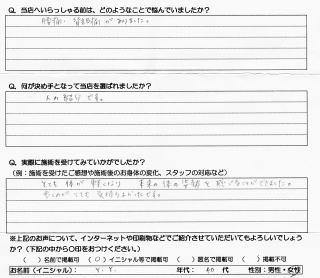 Q. 当店へいらっしゃる前は、どのようなことで悩んでいましたか？
腰痛・背中痛がありました。
Q. 何が決め手となって当店を選ばれましたか？
人の紹介です。
Q. 実際に施術を受けてみていかがでしたか？
（例：施術を受けたご感想や施術後のお身体の変化、スタッフの対応など）
とても体が軽くなり 本来の体の姿勢を感じることができました。
歩くのがとても気持ちよかったです。
※上記のお声について、インターネットや印刷物などでご紹介させていただいてもよろしいでしょうか？（下記の中から〇印をおつけください。）
（ ）名前で掲載可 （〇）イニシャル等で掲載可 （ ）匿名で掲載可 （ ）掲載不可
お名前（イニシャル）： Y. Y. 年代： 40 代 性別：男性・女性